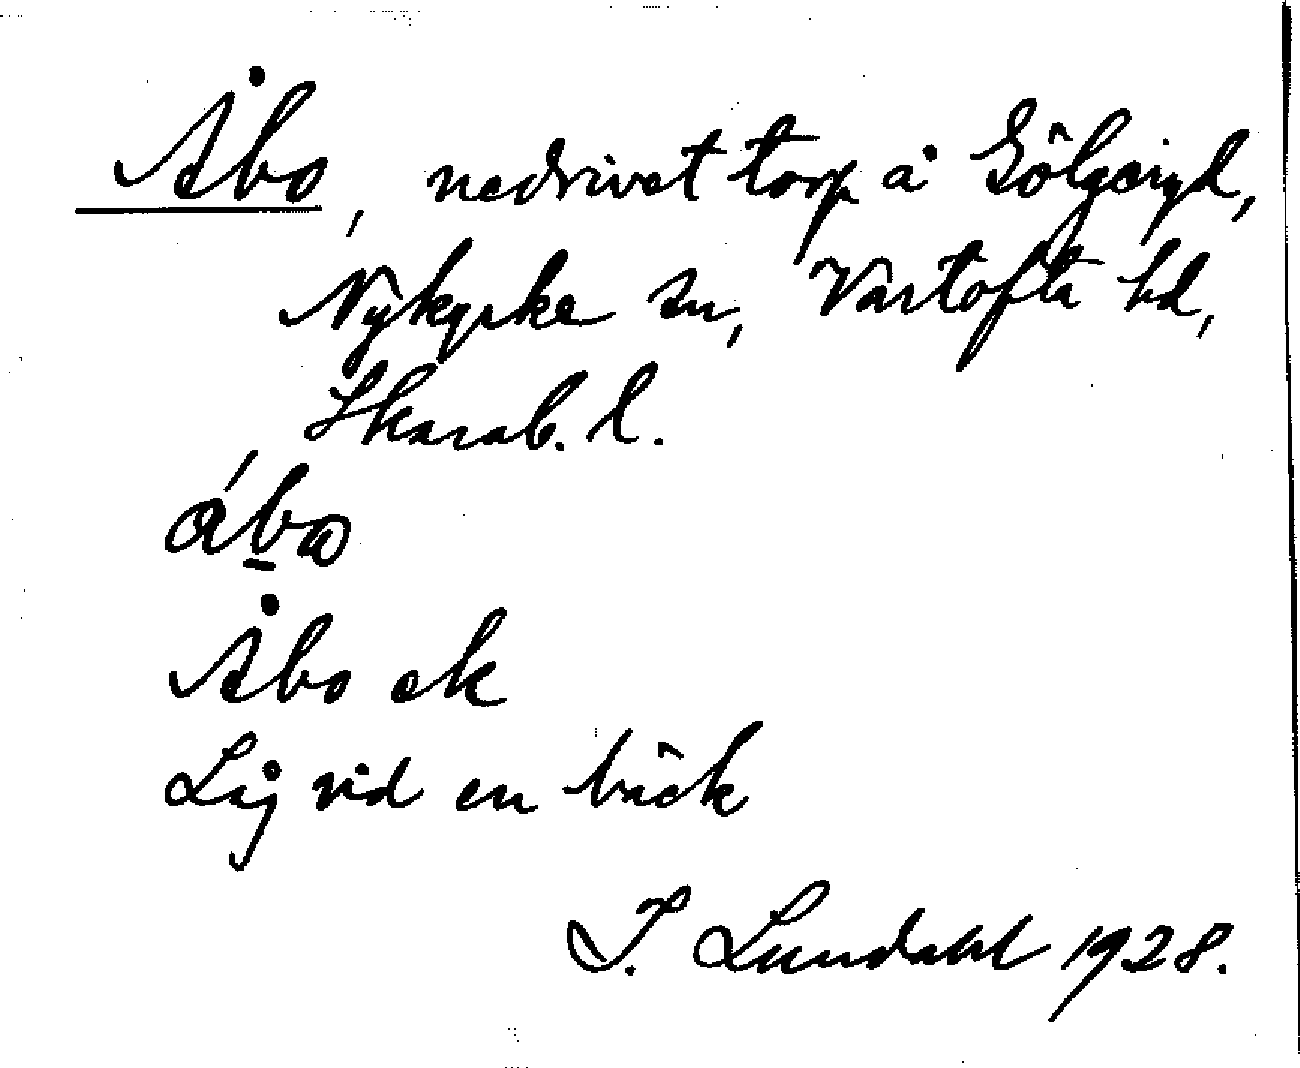 Åbo, nedrivet torp å Sölgäryd,
Nykyrke sn, Vartofta hd,
Skarab. l.
åbω
Åbo ek
Låg vid en bäck
I. Lundahl 1928.